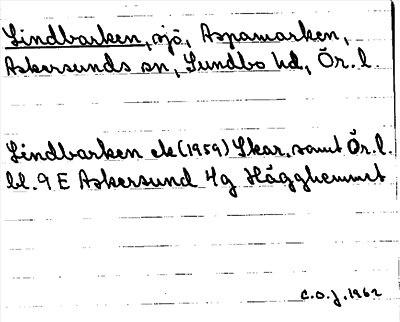 Lindbarken, sjö, Aspamarken,
Askersunds sn, Sundbo hd, Ör. l.
Lindbarken ek (1959) Skar. samt Ör. l.
bl. 9 E Askersund 4g Hägghemmet
C.O.J. 1962